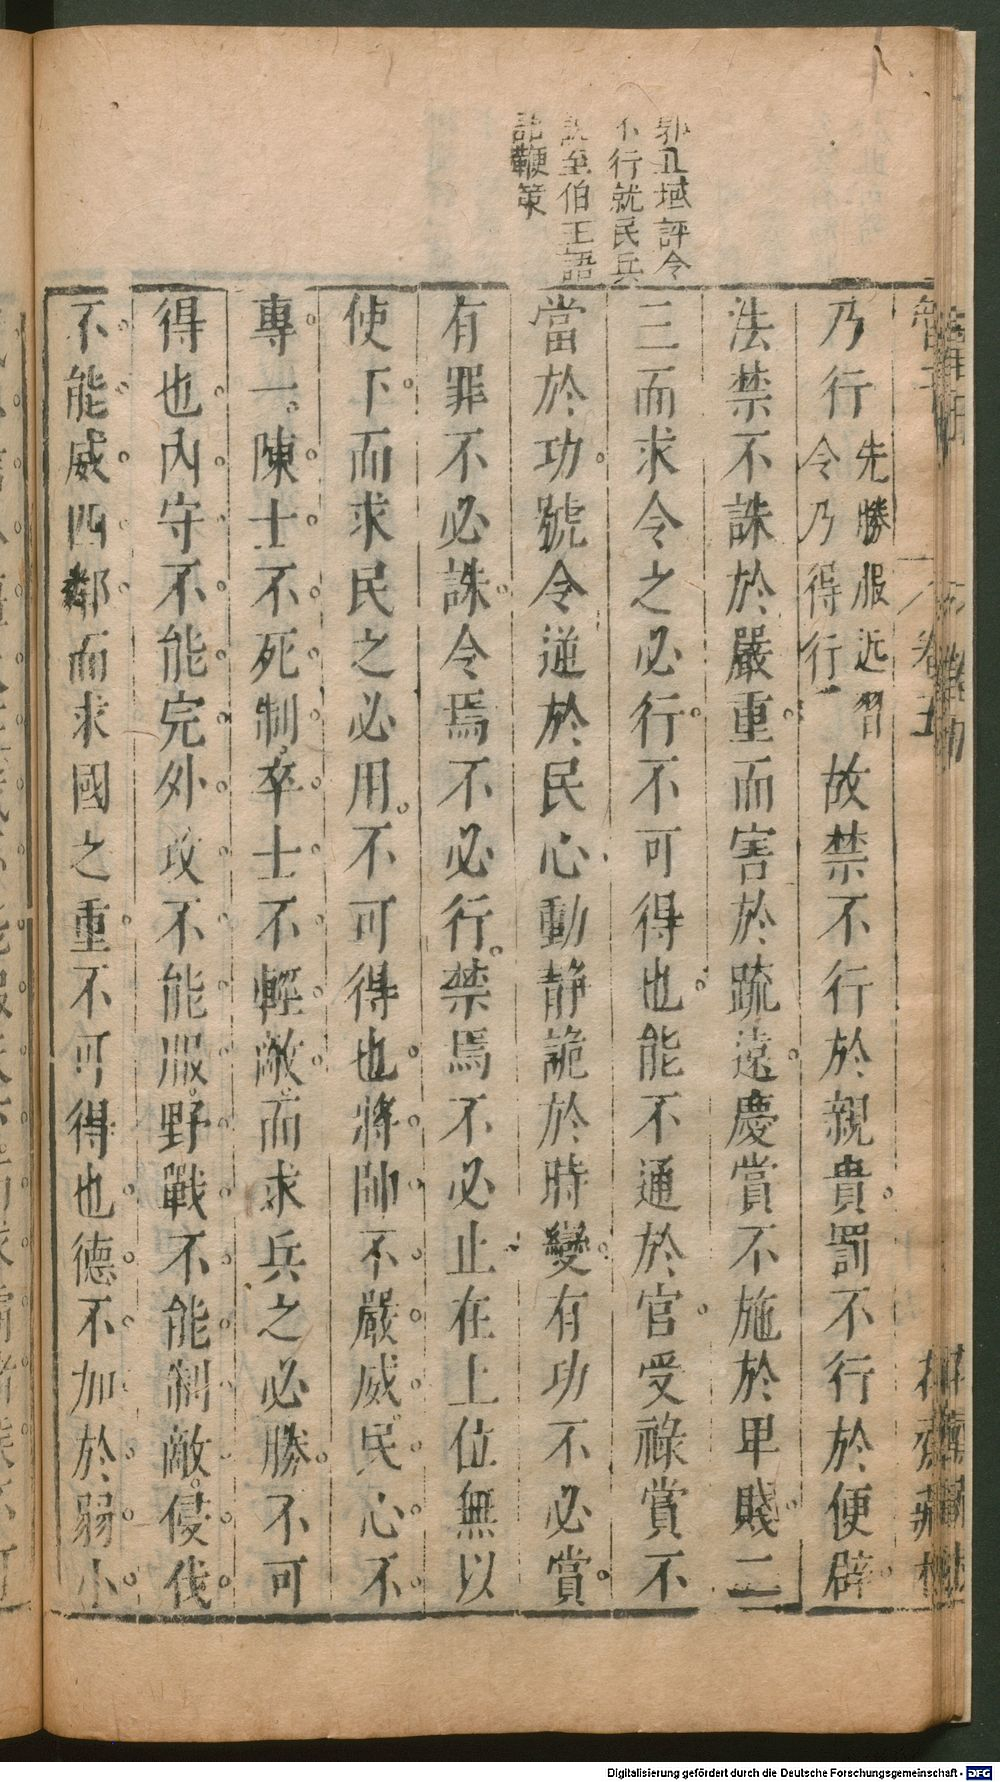 郭正域評令
不行就民兵
説至伯王語
語鞭策
乃行先勝服近習令乃得行故禁不行於親貴罰不行於便辟
法禁不誅於嚴重而害於疏遠慶賞不施於卑賤二
三而求令之必行不可得也能不通於官受祿賞不
當於功號令逆於民心動静詭於時變有功不必賞
有罪不必誅令焉不必行禁焉不必止在上位無以
使下而求民之必用不可得也將帥不嚴威民心不
專一陳士不死制卒士不輕敵而求兵之必勝不可
得也內守不能完外攻不能服野戰不能制敵侵伐
不能威四鄰而求國之重不可得也德不加於弱小
Digitalisierung gefördert durch die Deutsche Forschungsgemeinschaft - DFG